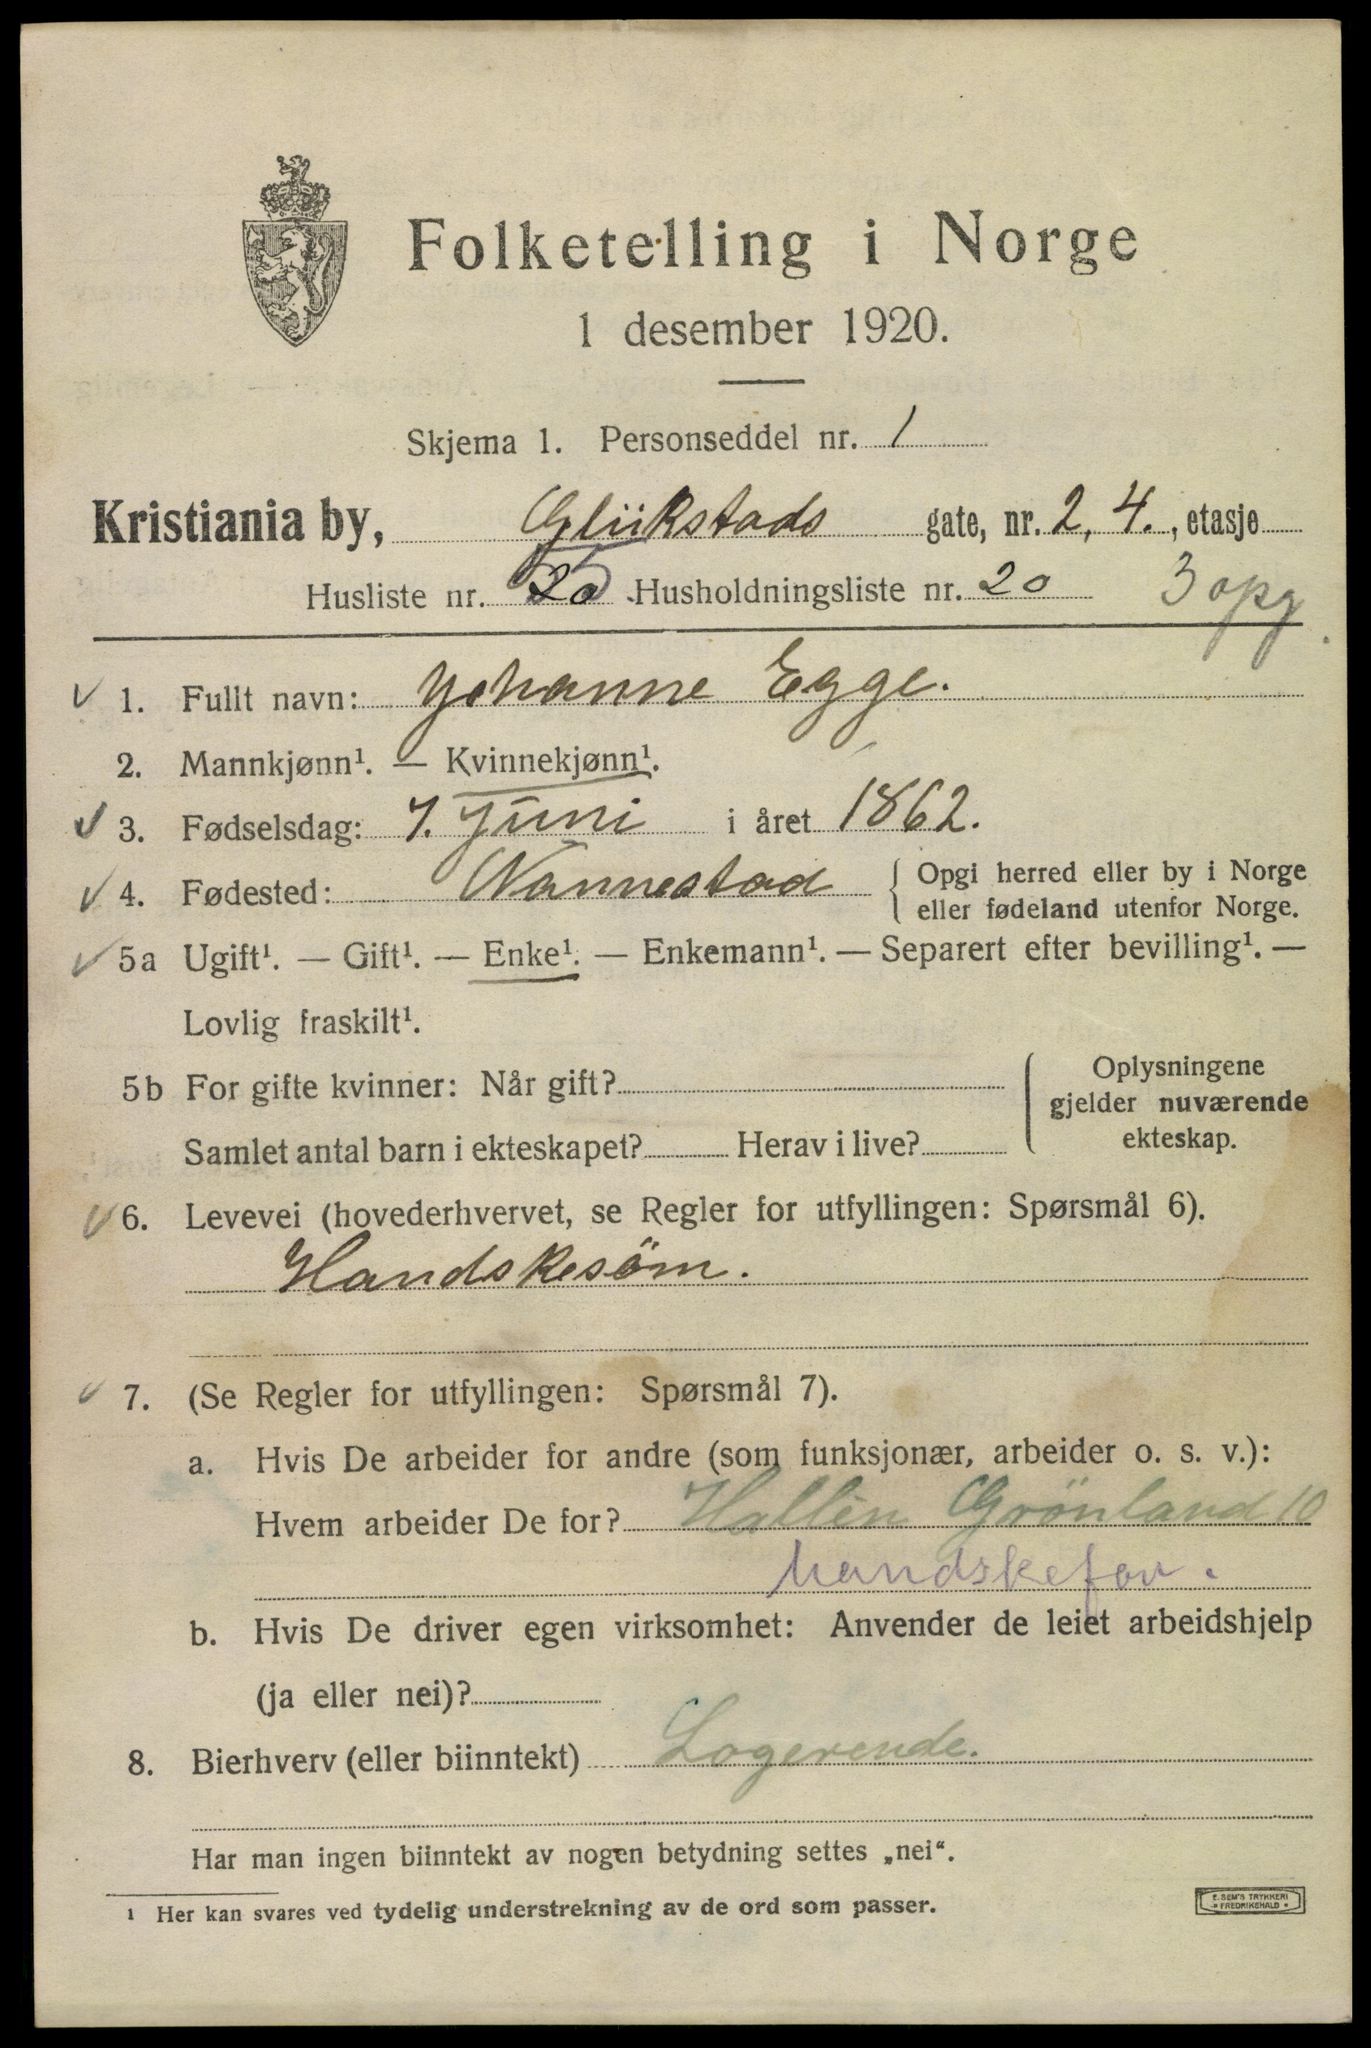 Folketelling i Norge
1 desember 1920.
Skjema 1. Personseddel nr. 1
Kristiania by, Glükstads gate, nr. 2, 4. , etasje
Husliste nr. Husholdningsliste nr. 20 3 opg.
1. Fullt navn: Johanne Egge.
2. Mannkjønn¹. — Kvinnekjønn¹.
3. Fødselsdag: 7. Juni i året 1862.
4. Fødested: Nannestad { Opgi herred eller by i Norge
eller fødeland utenfor Norge.
5a Ugift¹. — Gift¹. — Enke¹. — Enkemann¹. — Separert efter bevilling¹. —
Lovlig fraskilt¹.
5b For gifte kvinner: Når gift? { Oplysningene
gjelder nuværende
Samlet antal barn i ekteskapet? Herav i live? ekteskap.
6. Levevei (hovederhvervet, se Regler for utfyllingen: Spørsmål 6).
Handskesöm.
7. (Se Regler for utfyllingen: Spørsmål 7).
a. Hvis De arbeider for andre (som funksjonær, arbeider o. s. v.):
Hvem arbeider De for? Hallèn Grönland 10
handskefor.
b. Hvis De driver egen virksomhet: Anvender de leiet arbeidshjelp
(ja eller nei)?
8. Bierhverv (eller biinntekt) Logerende.
Har man ingen biinntekt av nogen betydning settes „nei“.
¹ Her kan svares ved tydelig understrekning av de ord som passer.
E. SEM'S TRYKKERI
FREDRIKEHALD